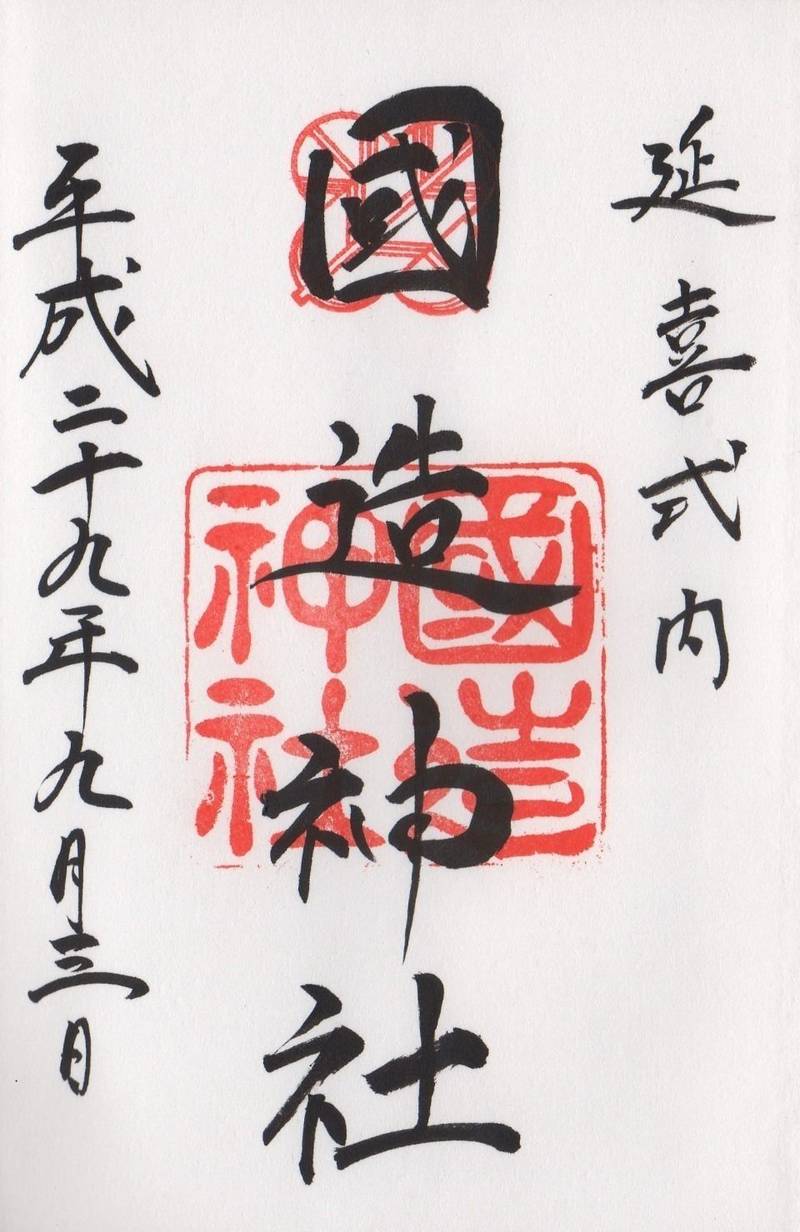 延喜式内
國造神社
國造
神社
平成二十九年九月三日